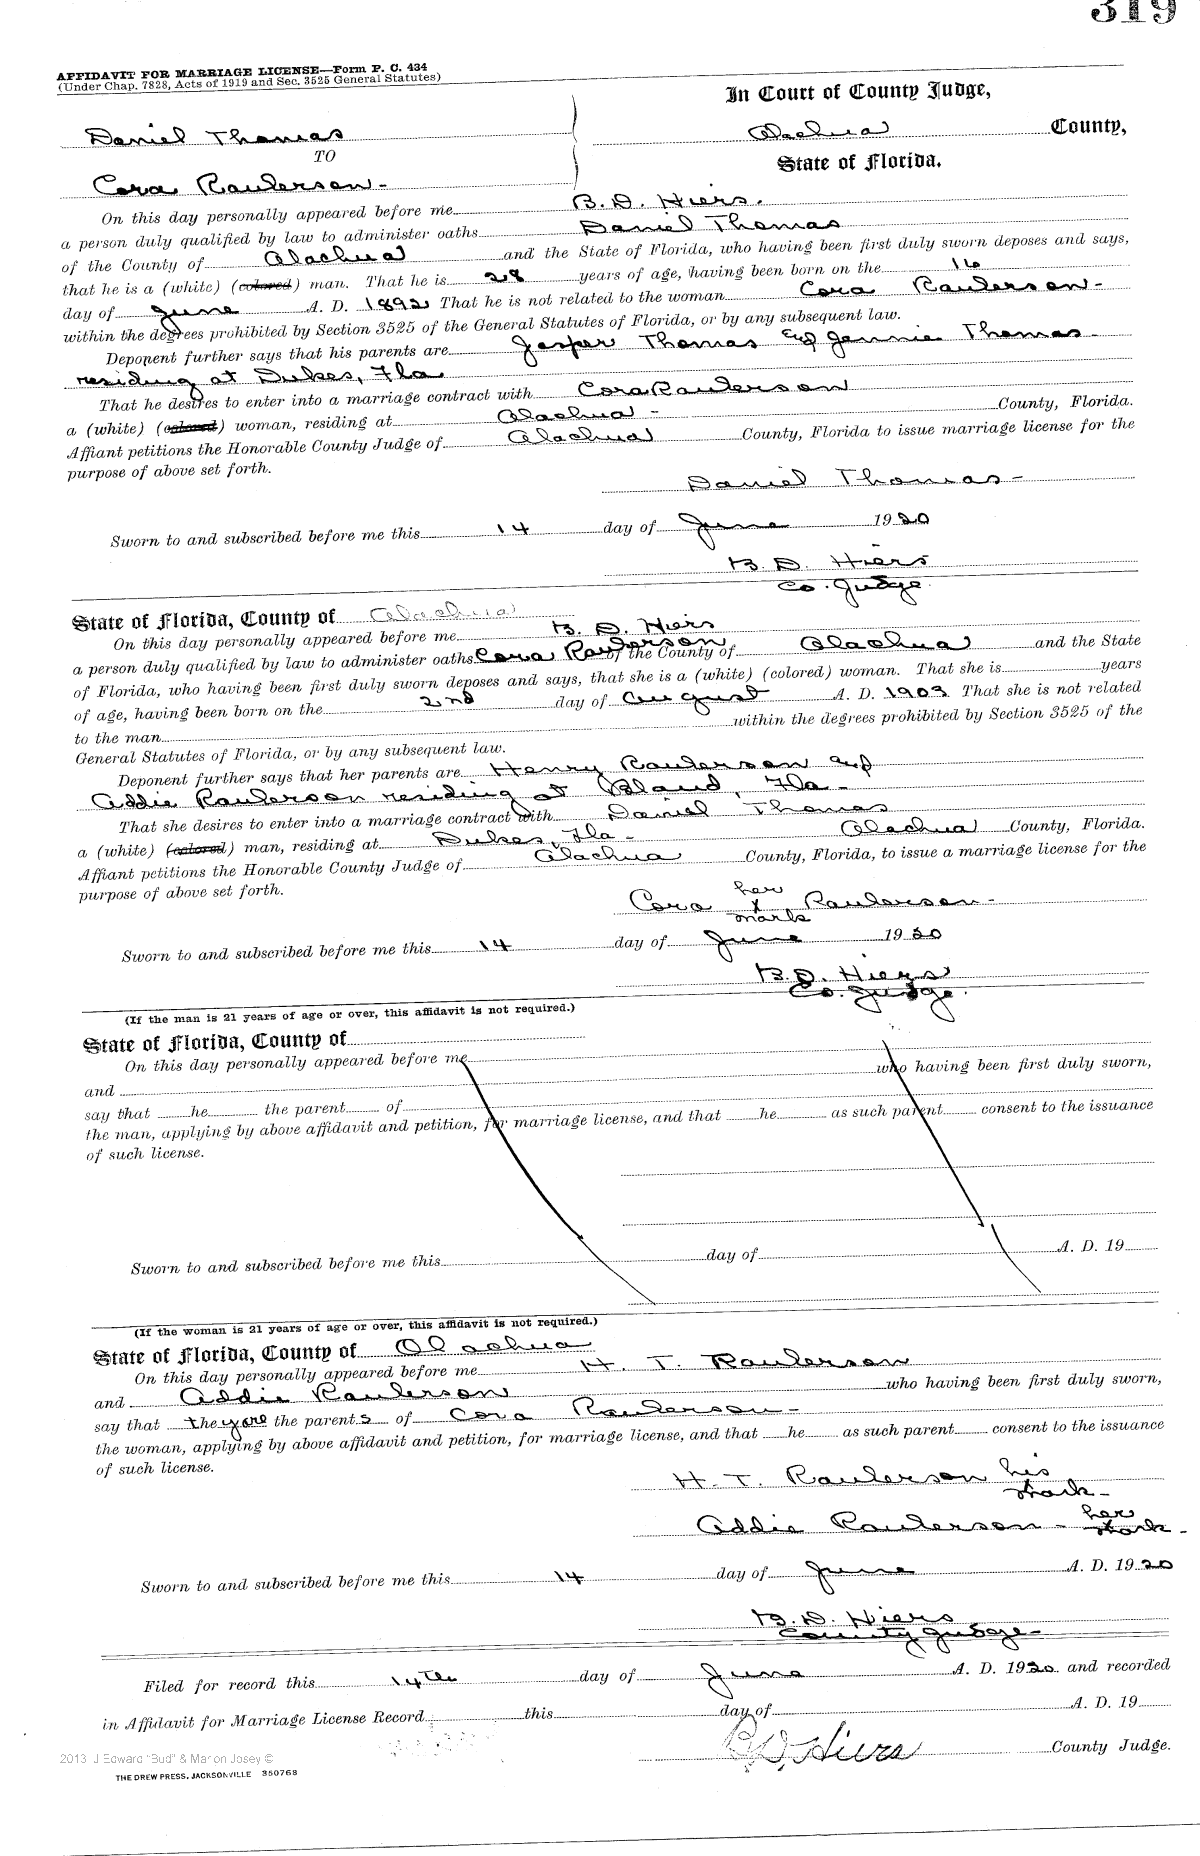 319
AFFIDAVIT FOR MARRIAGE LICENSE—Form P. C. 434
(Under Chap. 7828, Acts of 1919 and Sec. 3525 General Statutes)
In Court of County Judge,
Daniel Thomas
Alachua County,
TO
State of Florida.
Cora Raulerson-
On this day personally appeared before me B. D. Hiers.
a person duly qualified by law to administer oaths Daniel Thomas
of the County of Alachua and the State of Florida, who having been first duly sworn deposes and says,
that he is a (white) (colored) man. That he is 28 years of age, having been born on the 16
day of June A. D. 1892 That he is not related to the woman Cora Raulerson-
within the degrees prohibited by Section 3525 of the General Statutes of Florida, or by any subsequent law.
Deponent further says that his parents are Jasper Thomas and Jennie Thomas
residing at Dukes, Fla
That he desires to enter into a marriage contract with Cora Raulerson
a (white) (colored) woman, residing at Alachua - County, Florida.
Affiant petitions the Honorable County Judge of Alachua County, Florida to issue marriage license for the
purpose of above set forth.
Daniel Thomas-
Sworn to and subscribed before me this 14 day of June 1920
B. D. Hiers
Co. Judge.
State of Florida, County of Alachua
On this day personally appeared before me B. D. Hiers
a person duly qualified by law to administer oaths Cora Raulerson of the County of Alachua and the State
of Florida, who having been first duly sworn deposes and says, that she is a (white) (colored) woman. That she is years
of age, having been born on the 2nd day of August A. D. 1903 That she is not related
to the man within the degrees prohibited by Section 3525 of the
General Statutes of Florida, or by any subsequent law.
Deponent further says that her parents are Henry Raulerson and
Addie Raulerson residing at Bland, Fla-
That she desires to enter into a marriage contract with Daniel Thomas
a (white) (colored) man, residing at Dukes, Fla- Alachua County, Florida.
Affiant petitions the Honorable County Judge of Alachua County, Florida, to issue a marriage license for the
purpose of above set forth.
her
Cora x Raulerson-
mark
Sworn to and subscribed before me this 14 day of June 1920
B. D. Hiers
Co. Judge.
(If the man is 21 years of age or over, this affidavit is not required.)
State of Florida, County of
On this day personally appeared before me
and who having been first duly sworn,
say that he the parent of
the man, applying by above affidavit and petition, for marriage license, and that he as such parent consent to the issuance
of such license.
Sworn to and subscribed before me this day of A. D. 19
(If the woman is 21 years of age or over, this affidavit is not required.)
State of Florida, County of Alachua
On this day personally appeared before me H. T. Raulerson
and Addie Raulerson who having been first duly sworn,
say that they are the parents of Cora Raulerson-
the woman, applying by above affidavit and petition, for marriage license, and that he as such parent consent to the issuance
of such license.
H. T. Raulerson his
mark-
Addie Raulerson- her
mark-
Sworn to and subscribed before me this 14 day of June A. D. 1920
B. D. Hiers
County Judge-
Filed for record this 14th day of June A. D. 1920 and recorded
in Affidavit for Marriage License Record this day of A. D. 19
B D Hiers County Judge.
2013 J Edward "Bud" & Marion Josey ©
THE DREW PRESS, JACKSONVILLE 350768